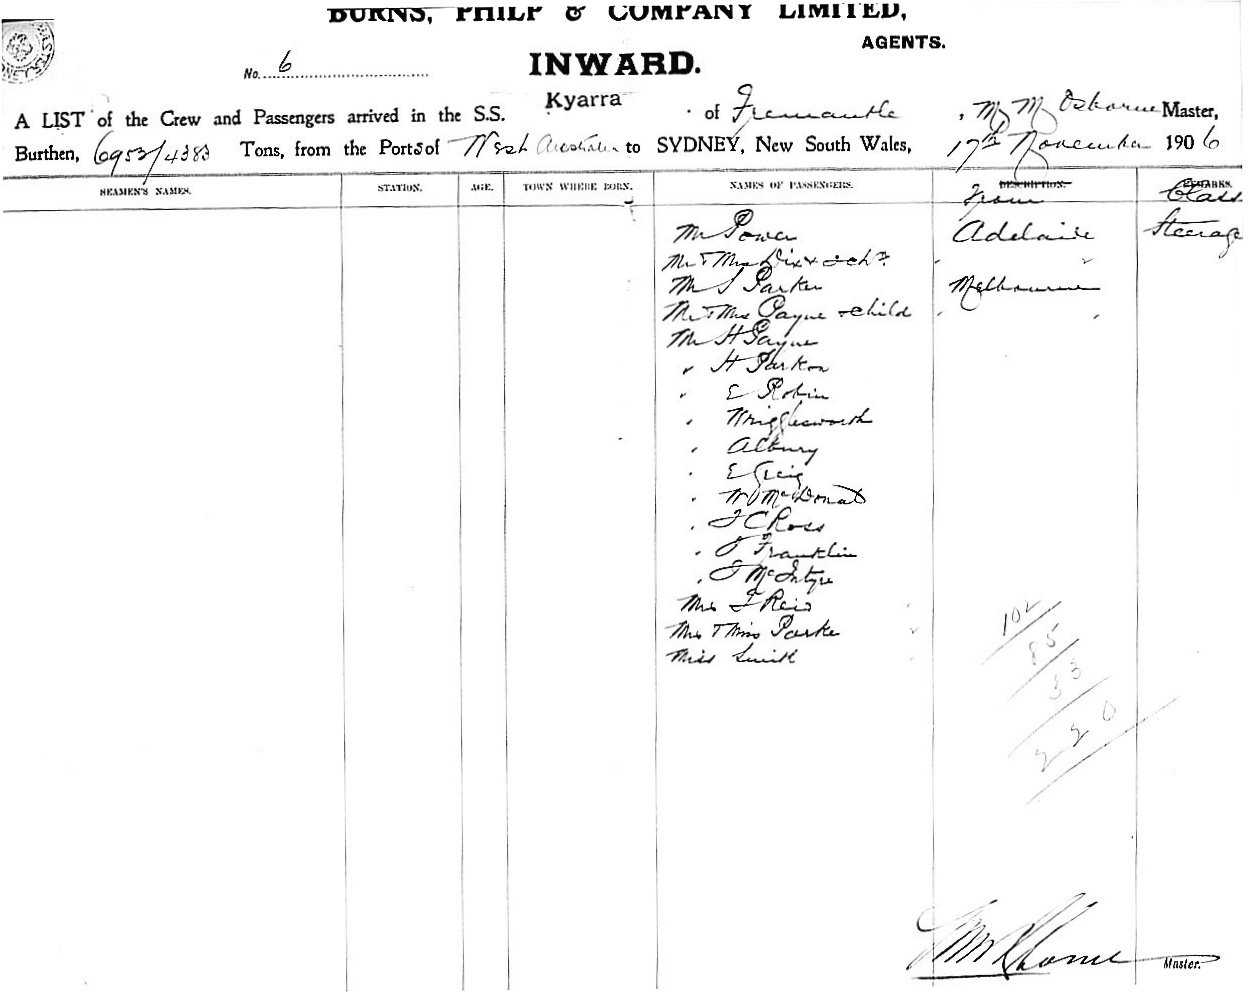 BURNS, PHILP & COMPANY LIMITED,
AGENTS.
No. 6
INWARD.
A LIST of the Crew and Passengers arrived in the S.S. Kyarra of Fremantle, Osborne Master,
Burthen, 6953/4383 Tons, from the Ports of West Australia to SYDNEY, New South Wales, 17th November 1906
SEAMEN'S NAMES. STATION. AGE. TOWN WHERE BORN. NAMES OF PASSENGERS. DESCRIPTION. REMARKS.
From Class
Mr Power Adelaide Steerage
Mr & Mrs Dix &
Mr S Parker Melbourne
Mr & Mrs Payne & child
Mr H Payne
" H
" E Robin
" Wrigglesworth
" Albury
" E Greig
" McDonald
" J C Ross
" J Franklin
" J McIntyre
Mrs J Reid
Mrs & Miss Parke
Miss Smith
102
85
33
220
Master.